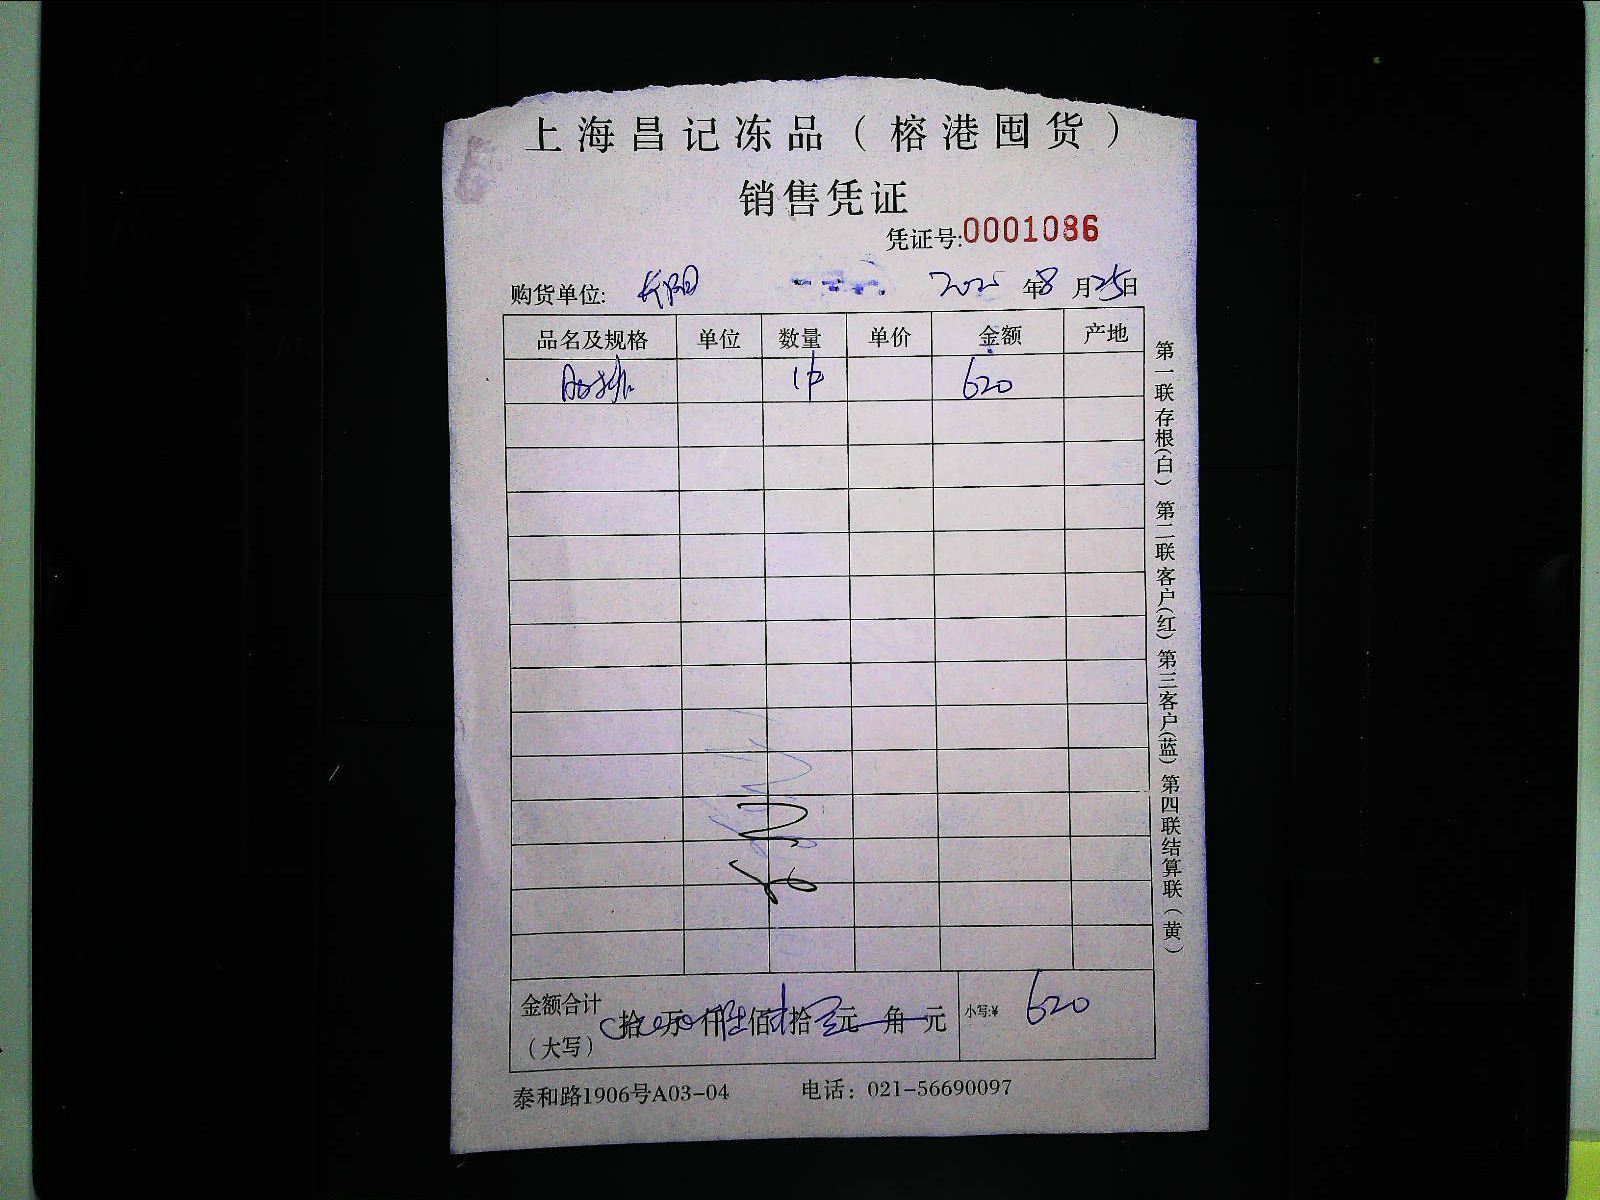 上海昌记冻品（榕港囤货）
销售凭证
凭证号:0001086
购货单位: 长阳 2025年8月25日
品名及规格 单位 数量 单价 金额 产地
1件 620
金额合计（大写） 拾 万 仟 佰 拾 元 角 元 小写:¥ 620
泰和路1906号A03-04 电话：021-56690097
第一联存根(白) 第二联客户(红) 第三客户(蓝) 第四联结算联（黄）